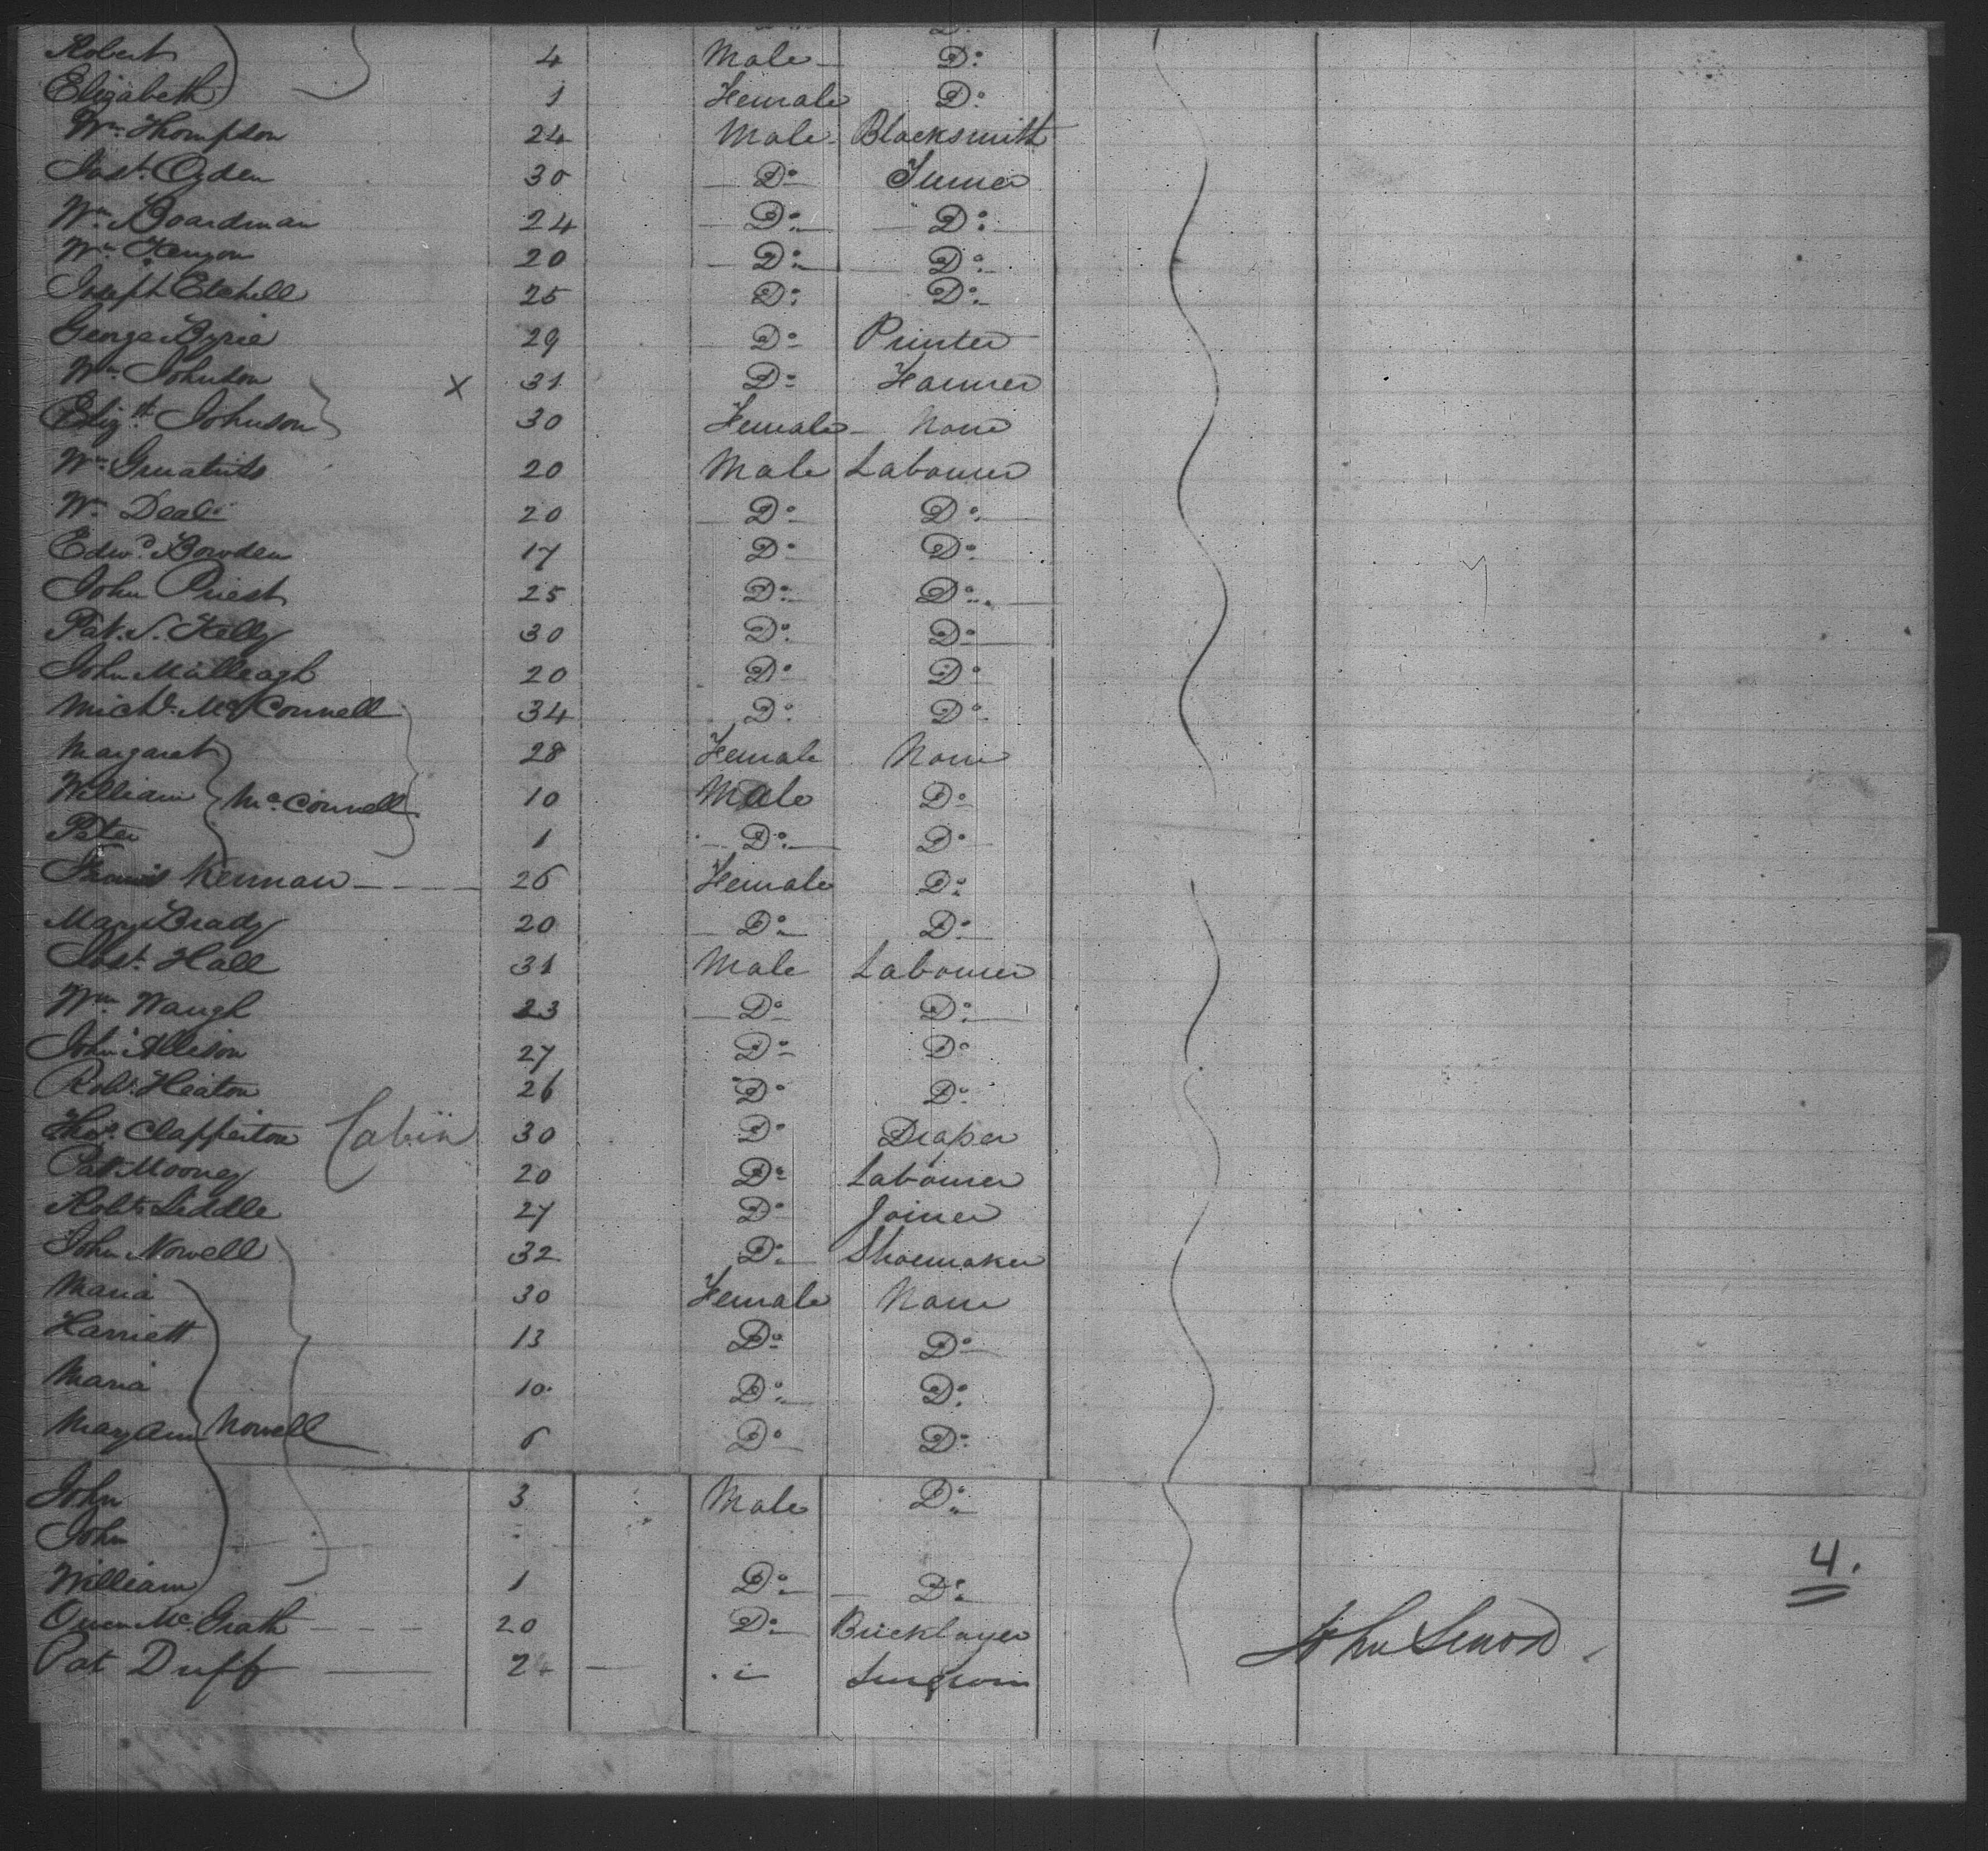 Robert 4 Male Do
Elizabeth 1 Female Do
Wm Thompson 24 Male Blacksmith
Jas. Ogden 30 Do Turner
Wm Boardman 24 Do Do
Wm Kenyon 20 Do Do
Joseph Etchell 25 Do Do
George Byrie 29 Do Printer
Wm Johnson X 31 Do Farmer
Elizth Johnson 30 Female None
Wm 20 Male Labourer
Wm 20 Do Do
Edwd Bowden 17 Do Do
John Priest 25 Do Do
Pat. S. Kelly 30 Do Do
John 20 Do Do
Michl McConnell 34 Do Do
Margaret 28 Female None
William McConnell 10 Male Do
Peter 1 Do Do
Kernan 26 Female Do
Mary Brady 20 Do Do
Jas. Hall 31 Male Labourer
Wm Waugh 23 Do Do
John Allison 27 Do Do
Robt Heaton 26 Do Do
Thos Clapperton Cabin 30 Do Draper
Pat Mooney 20 Do Labourer
Robt Liddle 27 Do Joiner
John Nowell 32 Do Shoemaker
Maria 30 Female None
Harriett 13 Do Do
Maria 10 Do Do
Mary Ann Nowell 6 Do Do
John 3 Male Do
John
William 1 Do Do
4.
Owen McGrath 20 Do Bricklayer
John
Pat Duffy 24 Surgeon